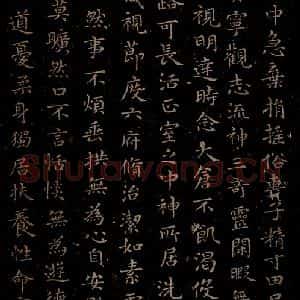 中急棄捐搖俗專子精寸田尺
寧觀志流神三奇靈閑暇無
視明達時念大倉不飢渴役
路可長活正室之中神所居洗
藏視節度六府脩治潔如素
然事不煩垂拱無為心自安
莫曠然口不言恬惔無為遊德
道憂柔身獨居扶養性命
Shufawang.CN